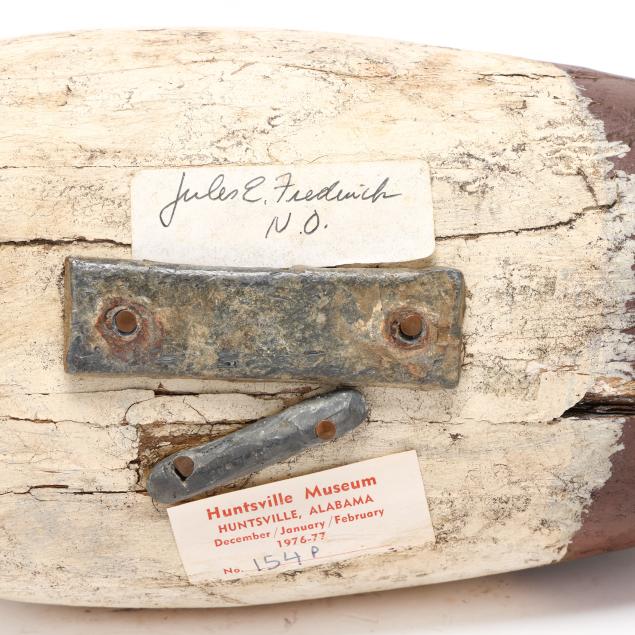 Jules E. Fredrick
N.O.
Huntsville Museum
HUNTSVILLE, ALABAMA
December/January/February
1976-77
No. 154 P